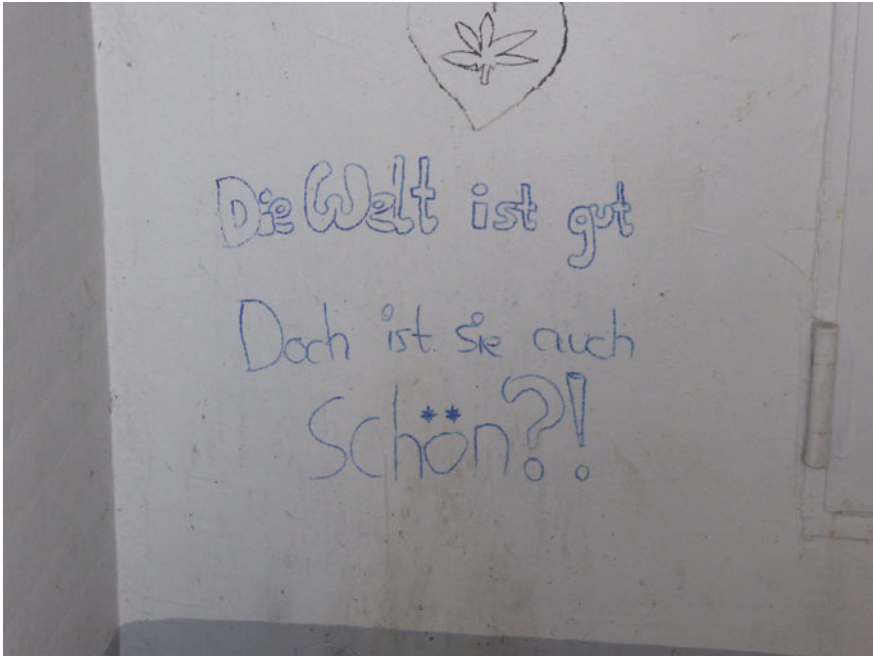 Die Welt ist gut
Doch ist sie auch
Schön?!